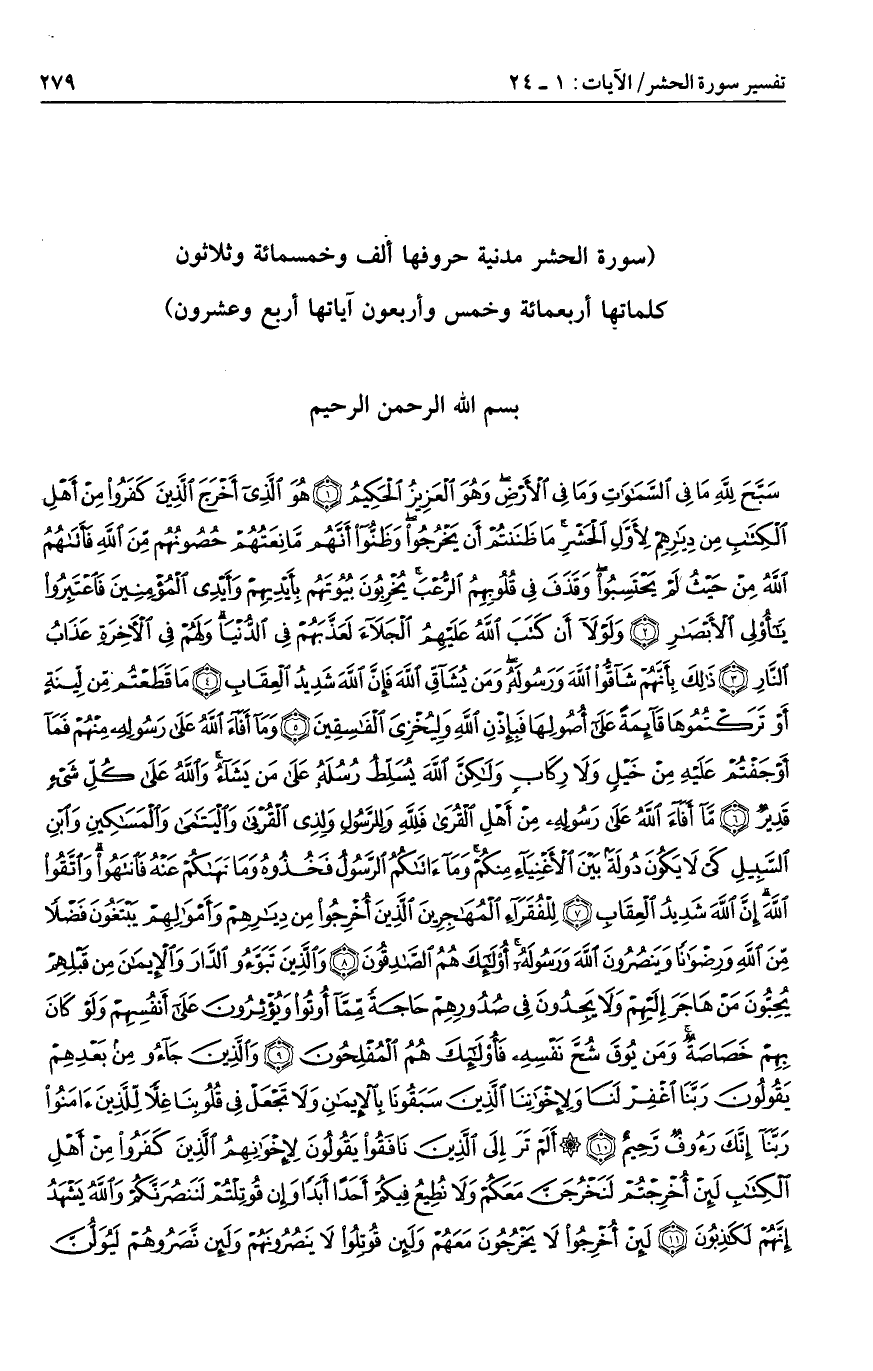 تفسير سورة الحشر/ الآيات: ١ - ٢٤
٢٧٩
(سورة الحشر مدنية حروفها ألف وخمسمائة وثلاثون
كلماتها أربعمائة وخمس وأربعون آياتها أربع وعشرون)
بسم الله الرحمن الرحيم
سَبَّحَ لِلَّهِ مَا فِى ٱلسَّمَٰوَٰتِ وَمَا فِى ٱلْأَرْضِ ۖ وَهُوَ ٱلْعَزِيزُ ٱلْحَكِيمُ ﴿١﴾ هُوَ ٱلَّذِىٓ أَخْرَجَ ٱلَّذِينَ كَفَرُوا۟ مِنْ أَهْلِ
ٱلْكِتَٰبِ مِن دِيَٰرِهِمْ لِأَوَّلِ ٱلْحَشْرِ ۚ مَا ظَنَنتُمْ أَن يَخْرُجُوا۟ ۖ وَظَنُّوٓا۟ أَنَّهُم مَّانِعَتُهُمْ حُصُونُهُم مِّنَ ٱللَّهِ فَأَتَىٰهُمُ
ٱللَّهُ مِنْ حَيْثُ لَمْ يَحْتَسِبُوا۟ ۖ وَقَذَفَ فِى قُلُوبِهِمُ ٱلرُّعْبَ ۚ يُخْرِبُونَ بُيُوتَهُم بِأَيْدِيهِمْ وَأَيْدِى ٱلْمُؤْمِنِينَ فَٱعْتَبِرُوا۟
يَٰٓأُو۟لِى ٱلْأَبْصَٰرِ ﴿٢﴾ وَلَوْلَآ أَن كَتَبَ ٱللَّهُ عَلَيْهِمُ ٱلْجَلَآءَ لَعَذَّبَهُمْ فِى ٱلدُّنْيَا ۖ وَلَهُمْ فِى ٱلْءَاخِرَةِ عَذَابُ
ٱلنَّارِ ﴿٣﴾ ذَٰلِكَ بِأَنَّهُمْ شَآقُّوا۟ ٱللَّهَ وَرَسُولَهُۥ ۖ وَمَن يُشَآقِّ ٱللَّهَ فَإِنَّ ٱللَّهَ شَدِيدُ ٱلْعِقَابِ ﴿٤﴾ مَا قَطَعْتُم مِّن لِّينَةٍ
أَوْ تَرَكْتُمُوهَا قَآئِمَةً عَلَىٰٓ أُصُولِهَا فَبِإِذْنِ ٱللَّهِ وَلِيُخْزِىَ ٱلْفَٰسِقِينَ ﴿٥﴾ وَمَآ أَفَآءَ ٱللَّهُ عَلَىٰ رَسُولِهِۦ مِنْهُمْ فَمَآ
أَوْجَفْتُمْ عَلَيْهِ مِنْ خَيْلٍ وَلَا رِكَابٍ وَلَٰكِنَّ ٱللَّهَ يُسَلِّطُ رُسُلَهُۥ عَلَىٰ مَن يَشَآءُ ۚ وَٱللَّهُ عَلَىٰ كُلِّ شَىْءٍ
قَدِيرٌ ﴿٦﴾ مَّآ أَفَآءَ ٱللَّهُ عَلَىٰ رَسُولِهِۦ مِنْ أَهْلِ ٱلْقُرَىٰ فَلِلَّهِ وَلِلرَّسُولِ وَلِذِى ٱلْقُرْبَىٰ وَٱلْيَتَٰمَىٰ وَٱلْمَسَٰكِينِ وَٱبْنِ
ٱلسَّبِيلِ كَىْ لَا يَكُونَ دُولَةًۢ بَيْنَ ٱلْأَغْنِيَآءِ مِنكُمْ ۚ وَمَآ ءَاتَىٰكُمُ ٱلرَّسُولُ فَخُذُوهُ وَمَا نَهَىٰكُمْ عَنْهُ فَٱنتَهُوا۟ ۚ وَٱتَّقُوا۟
ٱللَّهَ ۖ إِنَّ ٱللَّهَ شَدِيدُ ٱلْعِقَابِ ﴿٧﴾ لِلْفُقَرَآءِ ٱلْمُهَٰجِرِينَ ٱلَّذِينَ أُخْرِجُوا۟ مِن دِيَٰرِهِمْ وَأَمْوَٰلِهِمْ يَبْتَغُونَ فَضْلًا
مِّنَ ٱللَّهِ وَرِضْوَٰنًا وَيَنصُرُونَ ٱللَّهَ وَرَسُولَهُۥٓ ۚ أُو۟لَٰٓئِكَ هُمُ ٱلصَّٰدِقُونَ ﴿٨﴾ وَٱلَّذِينَ تَبَوَّءُو ٱلدَّارَ وَٱلْإِيمَٰنَ مِن قَبْلِهِمْ
يُحِبُّونَ مَنْ هَاجَرَ إِلَيْهِمْ وَلَا يَجِدُونَ فِى صُدُورِهِمْ حَاجَةً مِّمَّآ أُوتُوا۟ وَيُؤْثِرُونَ عَلَىٰٓ أَنفُسِهِمْ وَلَوْ كَانَ
بِهِمْ خَصَاصَةٌ ۚ وَمَن يُوقَ شُحَّ نَفْسِهِۦ فَأُو۟لَٰٓئِكَ هُمُ ٱلْمُفْلِحُونَ ﴿٩﴾ وَٱلَّذِينَ جَآءُو مِنۢ بَعْدِهِمْ
يَقُولُونَ رَبَّنَا ٱغْفِرْ لَنَا وَلِإِخْوَٰنِنَا ٱلَّذِينَ سَبَقُونَا بِٱلْإِيمَٰنِ وَلَا تَجْعَلْ فِى قُلُوبِنَا غِلًّا لِّلَّذِينَ ءَامَنُوا۟
رَبَّنَآ إِنَّكَ رَءُوفٌ رَّحِيمٌ ﴿١٠﴾ ۞ أَلَمْ تَرَ إِلَى ٱلَّذِينَ نَافَقُوا۟ يَقُولُونَ لِإِخْوَٰنِهِمُ ٱلَّذِينَ كَفَرُوا۟ مِنْ أَهْلِ
ٱلْكِتَٰبِ لَئِنْ أُخْرِجْتُمْ لَنَخْرُجَنَّ مَعَكُمْ وَلَا نُطِيعُ فِيكُمْ أَحَدًا أَبَدًا وَإِن قُوتِلْتُمْ لَنَنصُرَنَّكُمْ وَٱللَّهُ يَشْهَدُ
إِنَّهُمْ لَكَٰذِبُونَ ﴿١١﴾ لَئِنْ أُخْرِجُوا۟ لَا يَخْرُجُونَ مَعَهُمْ وَلَئِن قُوتِلُوا۟ لَا يَنصُرُونَهُمْ وَلَئِن نَّصَرُوهُمْ لَيُوَلُّنَّ